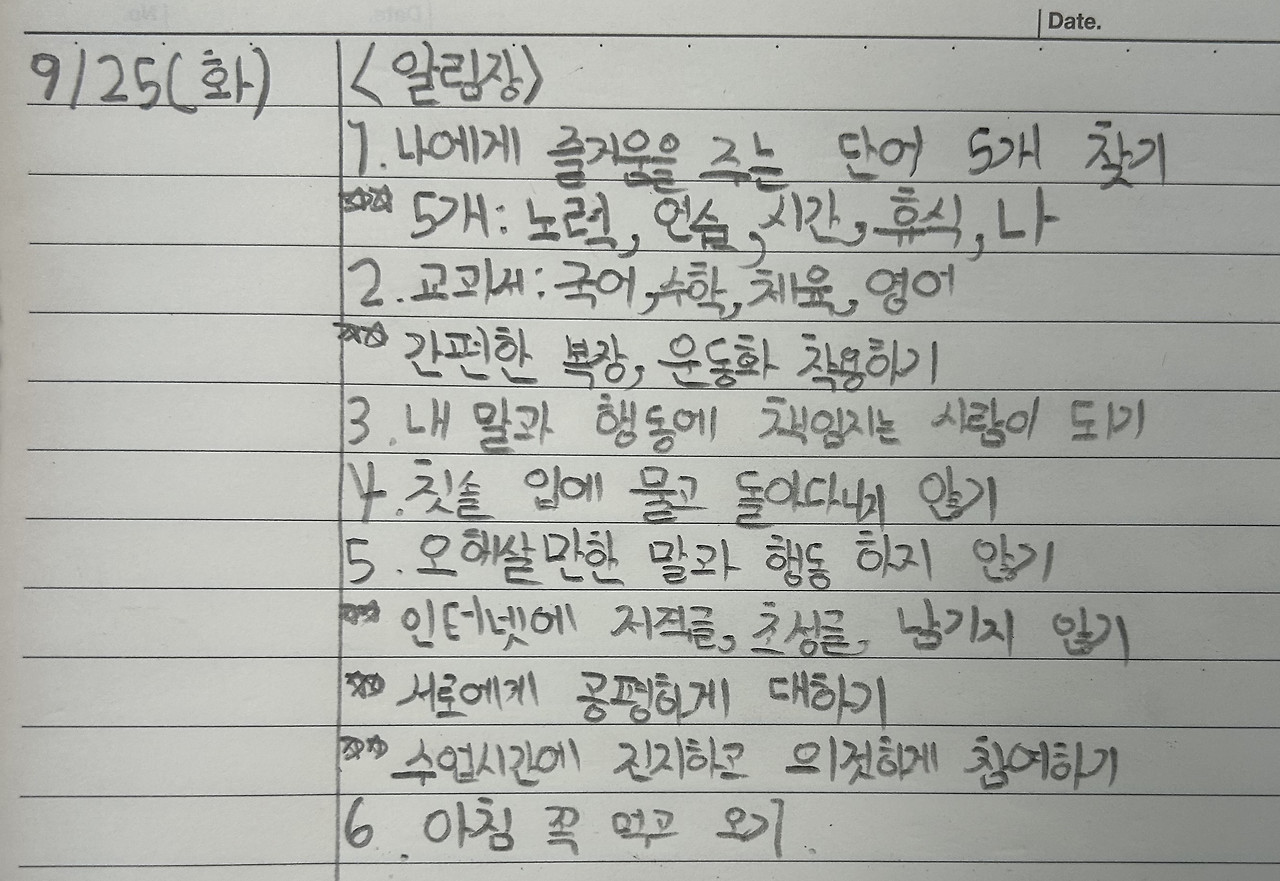 Date.
9/25(화) <알림장>
1. 나에게 즐거움을 주는 단어 5개 찾기
☆☆ 5개: 노력, 연습, 시간, 휴식, 나
2. 교과서: 국어, 수학, 체육, 영어
☆☆ 간편한 복장, 운동화 착용하기
3. 내 말과 행동에 책임지는 사람이 되기
4. 칫솔 입에 물고 돌아다니지 않기
5. 오해살만한 말과 행동 하지 않기
☆☆ 인터넷에 저격글, 초성글, 남기지 않기
☆☆ 서로에게 공평하게 대하기
☆☆ 수업시간에 진지하고 의젓하게 참여하기
6. 아침 꼭 먹고 오기.